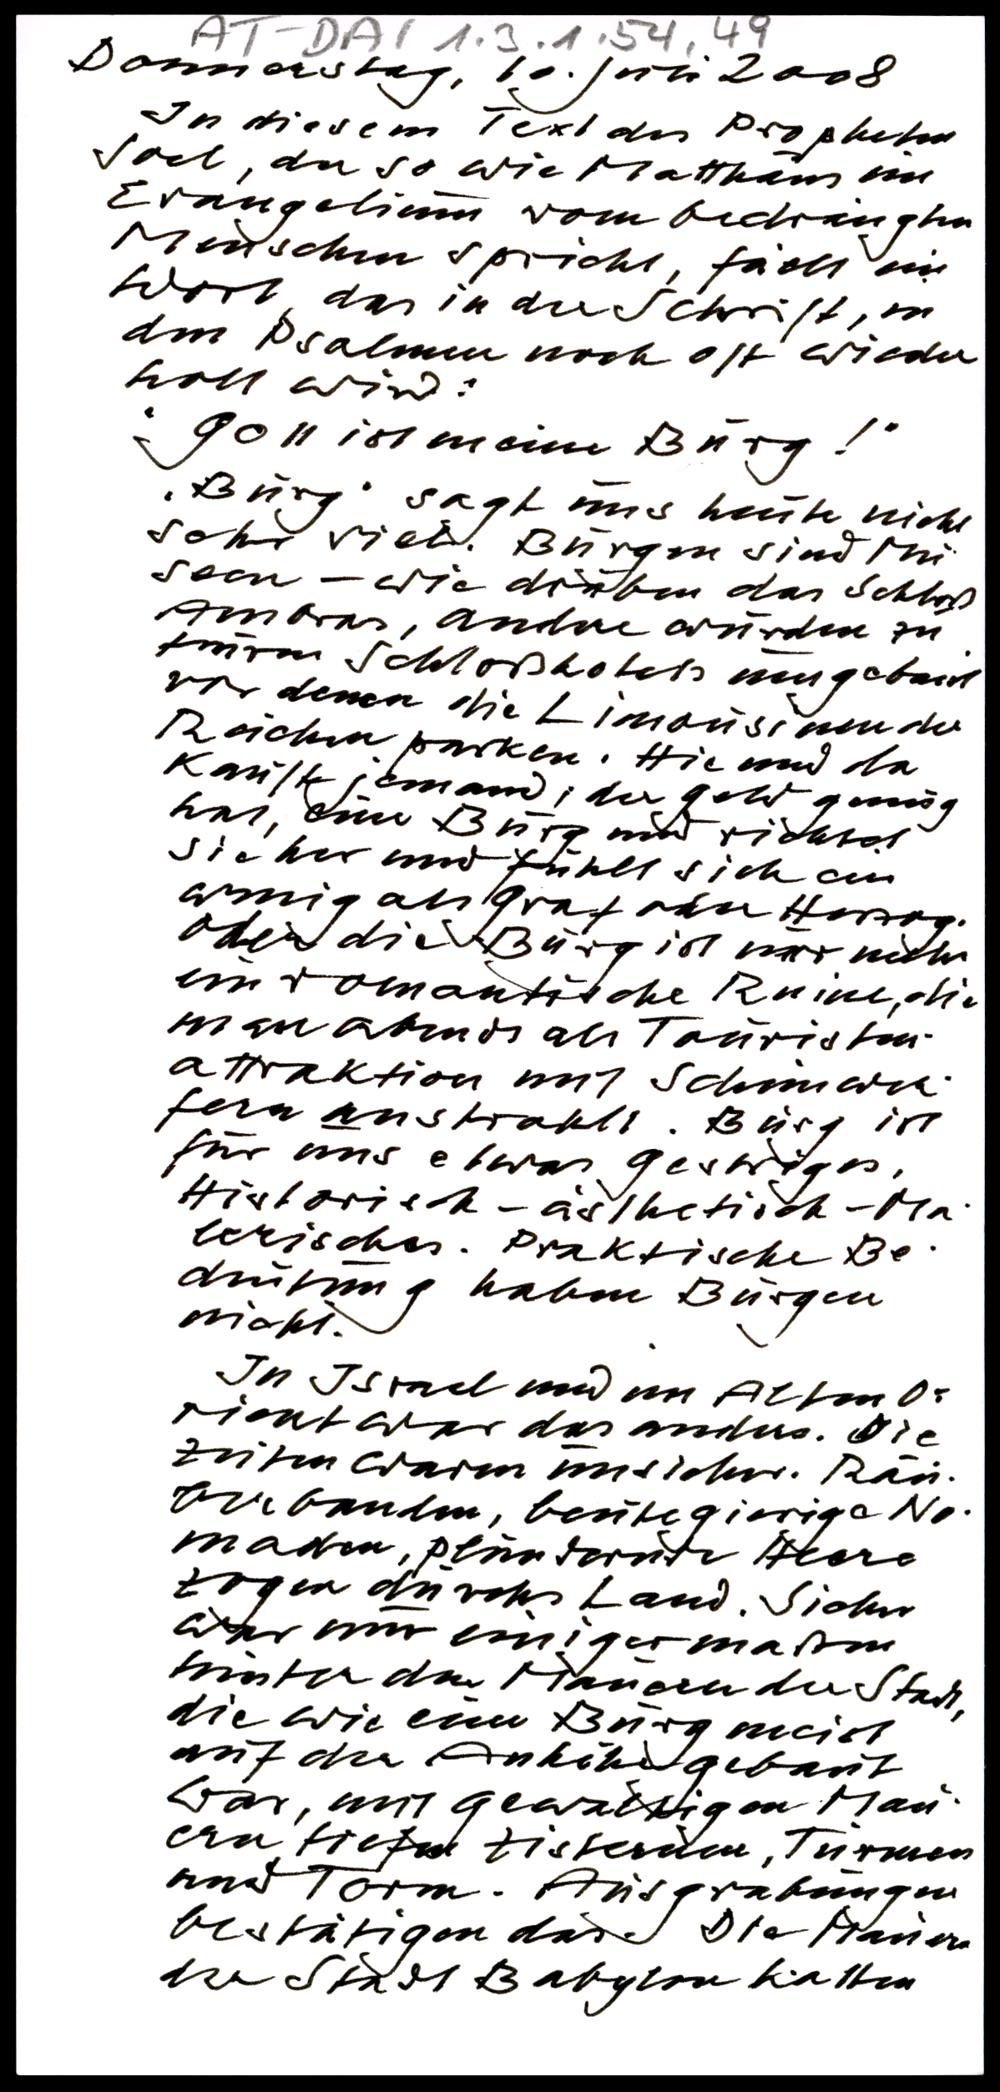 AT-DAI 1.3.1.54,49
Donnerstag, 10. Juli 2008
In diesem Text des Propheten
Joel, der so wie Matthäus im
Evangelium vom bedrängten
Menschen spricht, fällt ein
Wort, das in der Schrift, in
den Psalmen noch oft wieder
holt wird:
"Gott ist meine Burg!"
"Burg" sagt uns heute nicht
sehr viel. Burgen sind Mu
seen – wie drüben das Schloß
Ambras, andere wurden zu
teuren Schloßhotels umgebaut
vor denen die Limousinen der
Reichen parken. Hie und da
kauft jemand, der Geld genug
hat, eine Burg und richtet
sie her und fühlt sich ein
wenig als Graf oder Herzog.
Oder die Burg ist nur mehr
ein romantische Ruine, die
man abends als Touristen-
attraktion mit Scheinwer-
fern anstrahlt. Burg ist
für uns etwas Gestriges,
Historisch-ästhetisch-Ma-
lerisches. Praktische Be-
deutung haben Burgen
nicht.
In Israel und im Alten O-
rient war das anders. Die
Zeiten waren unsicher. Räu-
berbanden, beutegierige No-
maden, plündernde Heere
zogen durchs Land. Sicher
war nur einigermaßen
hinter den Mauern der Stadt,
die wie eine Burg meist
auf der Anhöhe gebaut
war, mit gewaltigen Mau-
ern, tiefen Zisternen, Türmen
und Toren. Ausgrabungen
bestätigen das. Die Mauern
der Stadt Babylon hatten